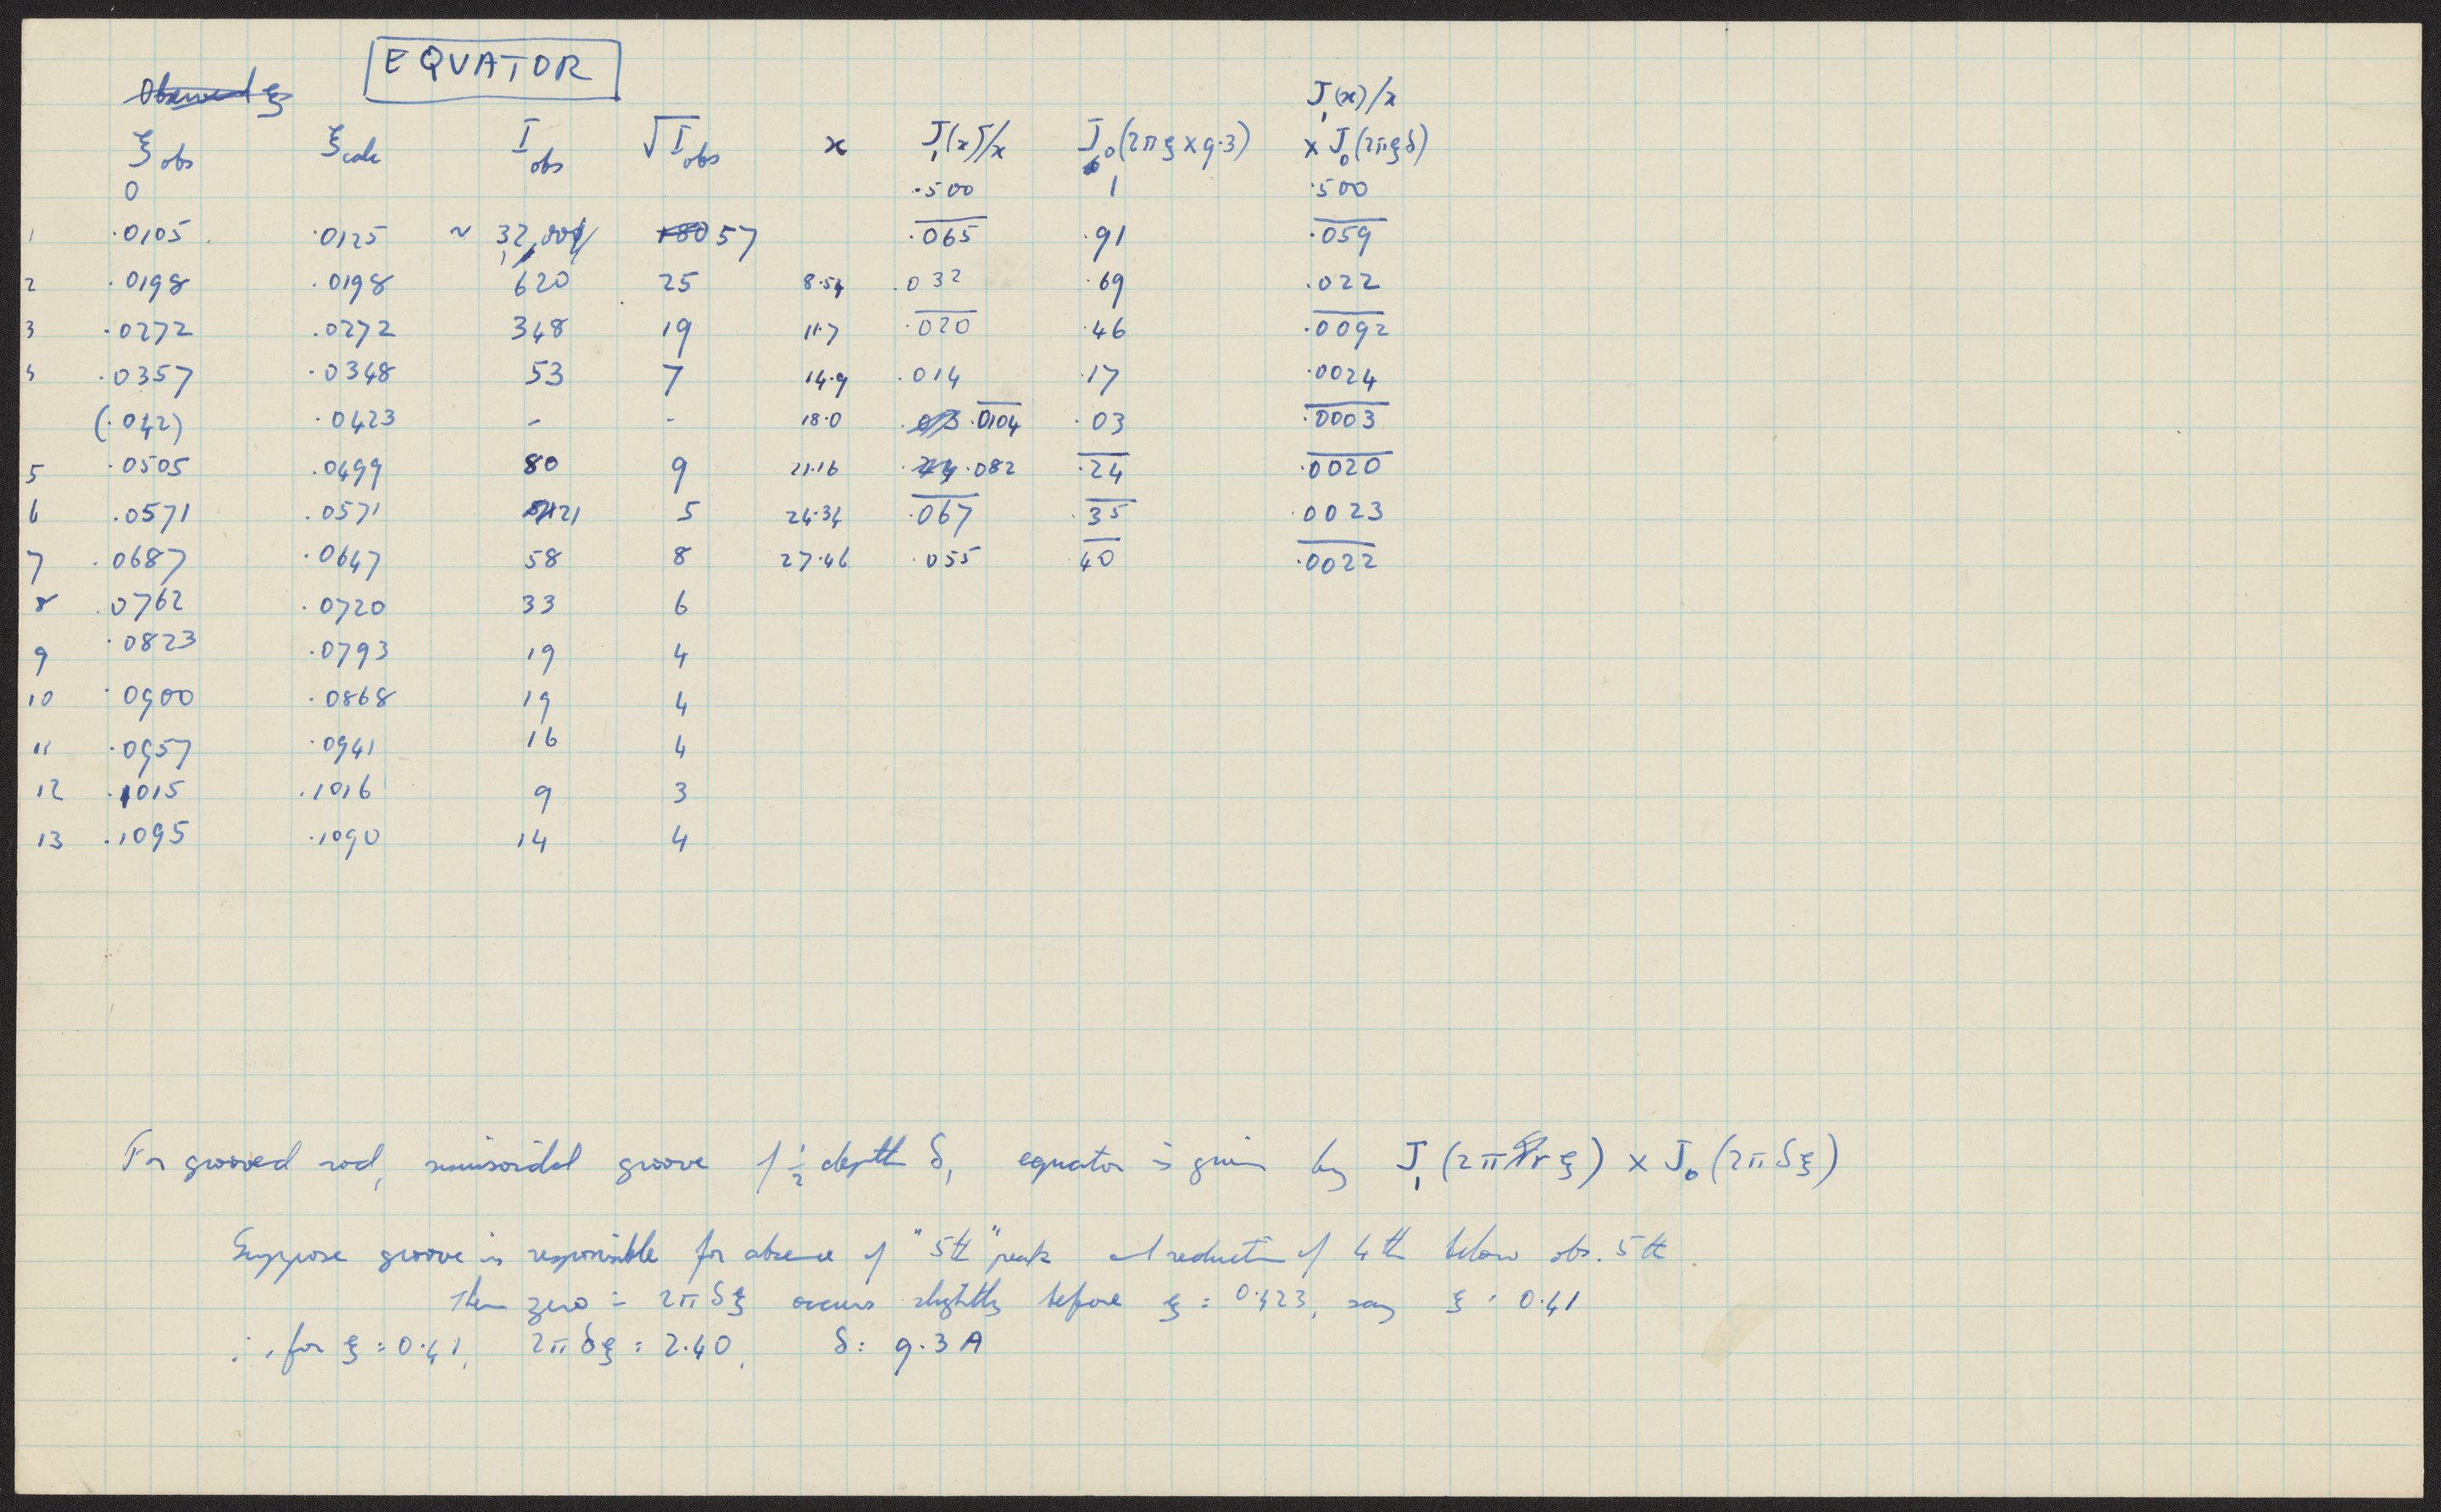 EQUATOR
Observed ξ
ξobs ξcalc Iobs √Iobs x J₁(x)/x J₀(2πξ×9.3) J₁(x)/x × J₀(2πξδ)
0 .500 1 .500
1 .0105 .0125 ~ 32,00 57 .065 .91 .059
2 .0198 .0198 620 25 8.54 .032 .69 .022
3 .0272 .0272 348 19 11.7 .020 .46 .0092
4 .0357 .0348 53 7 14.9 .014 .17 .0024
(.042) .0423 - - 18.0 .0104 .03 .0003
5 .0505 .0499 80 9 21.16 .082 .24 .0020
6 .0571 .0571 21 5 24.34 .067 .35 .0023
7 .0687 .0647 58 8 27.46 .055 .40 .0022
8 .0762 .0720 33 6
9 .0823 .0793 19 4
10 .0900 .0868 19 4
11 .0957 .0941 16 4
12 .1015 .1016 9 3
13 .1095 .1090 14 4
For grooved rod, sinusoidal groove of ½ depth δ, equator is given by J₁(2πrξ) × J₀(2πδξ)
Suppose groove is responsible for absence of "5th" peak and reduction of 4th below obs. 5th
Then zero = 2πδξ occurs slightly before ξ = 0.423, say ξ = 0.41
∴ for ξ = 0.41, 2πδξ = 2.40, δ = 9.3 A